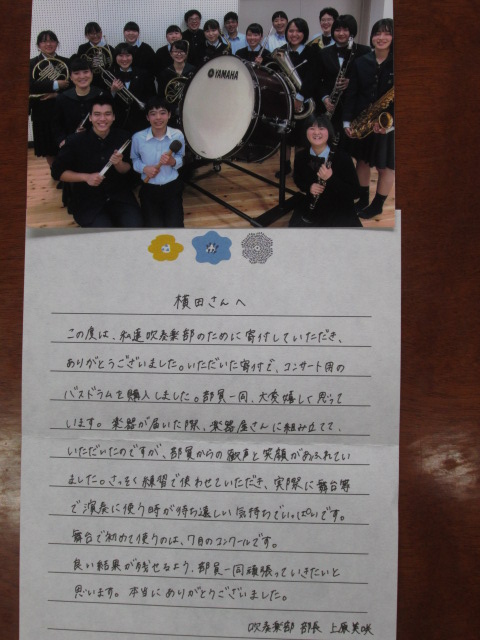 YAMAHA
横田さんへ
この度は、私達吹奏楽部のために寄付していただき、
ありがとうございました。いただいた寄付で、コンサート用の
バスドラムを購入しました。部員一同、大変嬉しく思って
います。楽器が届いた際、楽器屋さんに組み立てて、
いただいたのですが、部員からの歓声と笑顔があふれてい
ました。さっそく練習で使わせていただき、実際に舞台等
で演奏に使う時が待ち遠しい気持ちでいっぱいです。
舞台で初めて使うのは、7月のコンクールです。
良い結果が残せるよう、部員一同頑張っていきたいと
思います。本当にありがとうございました。
吹奏楽部 部長 上原美咲